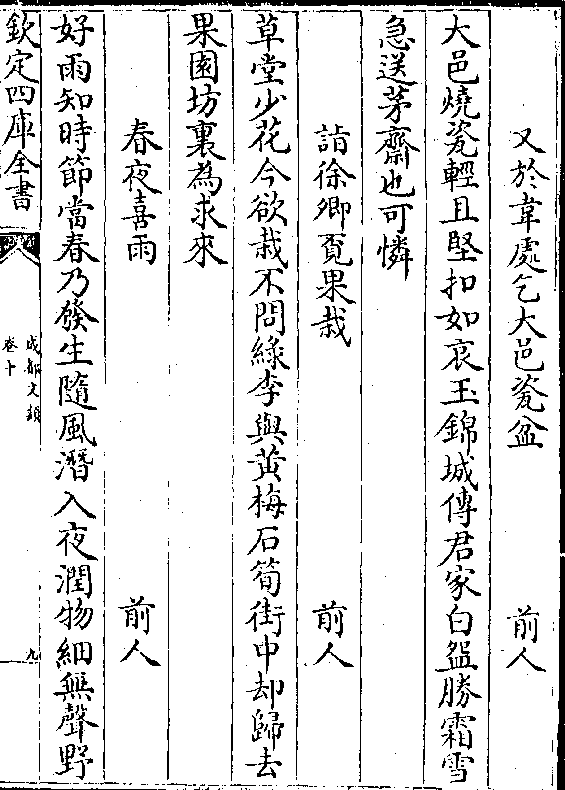 又於韋處乞大邑瓷盆 前人
大邑燒瓷輕且堅扣如哀玉錦城傳君家白盌勝霜雪
急送茅齋也可憐
詣徐卿覓果栽 前人
草堂少花今欲栽不問綠李與黃梅石筍街中却歸去
果園坊裏為求來
春夜喜雨 前人
好雨知時節當春乃發生隨風潛入夜潤物細無聲野
欽定四庫全書
成都文類
卷十
九